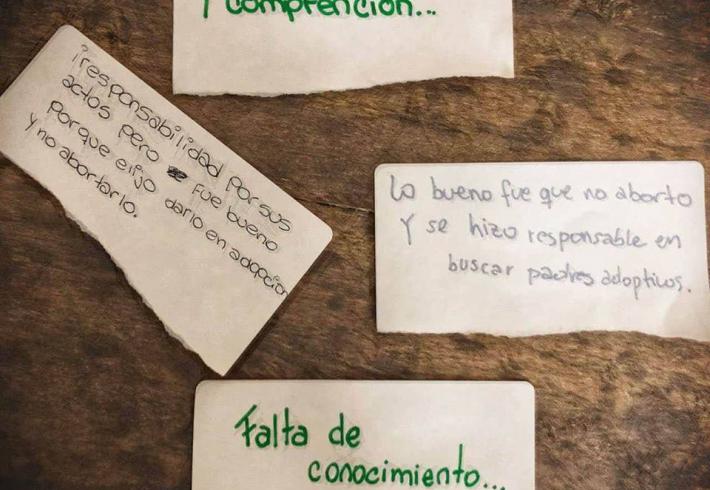 Y comprención...
irresponsabilidad por sus
actos pero fue bueno
porque elijo darlo en adopcion
y no abortarlo.
Lo bueno fue que no aborto
Y se hizo responsable en
buscar padres adoptivos.
Falta de
conocimiento...